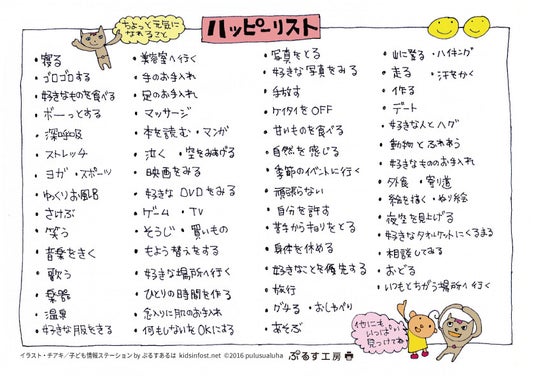 ちょっと元気に
なれること
ハッピーリスト
・寝る
・ゴロゴロする
・好きなものを食べる
・ボーっとする
・深呼吸
・ストレッチ
・ヨガ ・スポーツ
・ゆっくりお風呂
・さけぶ
・笑う
・音楽をきく
・歌う
・楽器
・温泉
・好きな服をきる
・美容室へ行く
・手のお手入れ
・足のお手入れ
・マッサージ
・本を読む ・マンガ
・泣く ・空をみあげる
・映画をみる
・好きなDVDをみる
・ゲーム ・TV
・そうじ ・買いもの
・もよう替えをする
・好きな場所へ行く
・ひとりの時間を作る
・念入りに肌のお手入れ
・何もしないをOKにする
・写真をとる
・好きな写真をみる
・手放す
・ケイタイをOFF
・甘いものを食べる
・自然を感じる
・季節のイベントに行く
・頑張らない
・自分を許す
・苦手からキョリをとる
・身体を休める
・好きなことを優先する
・旅行
・グチる ・おしゃべり
・あそぶ
・山に登る ・ハイキング
・走る ・汗をかく
・作る
・デート
・好きな人とハグ
・動物とふれあう
・好きなもののお手入れ
・外食 ・寄り道
・絵を描く ・ぬり絵
・夜空を見上げる
・好きなタオルケットにくるまる
・相談してみる
・おどる
・いつもとちがう場所へ行く
他にも
いっぱい
見つけてね
イラスト・チアキ／子ども情報ステーション by ぷるすあるは kidsinfost.net ©2016 pulusualuha
ぷるす工房